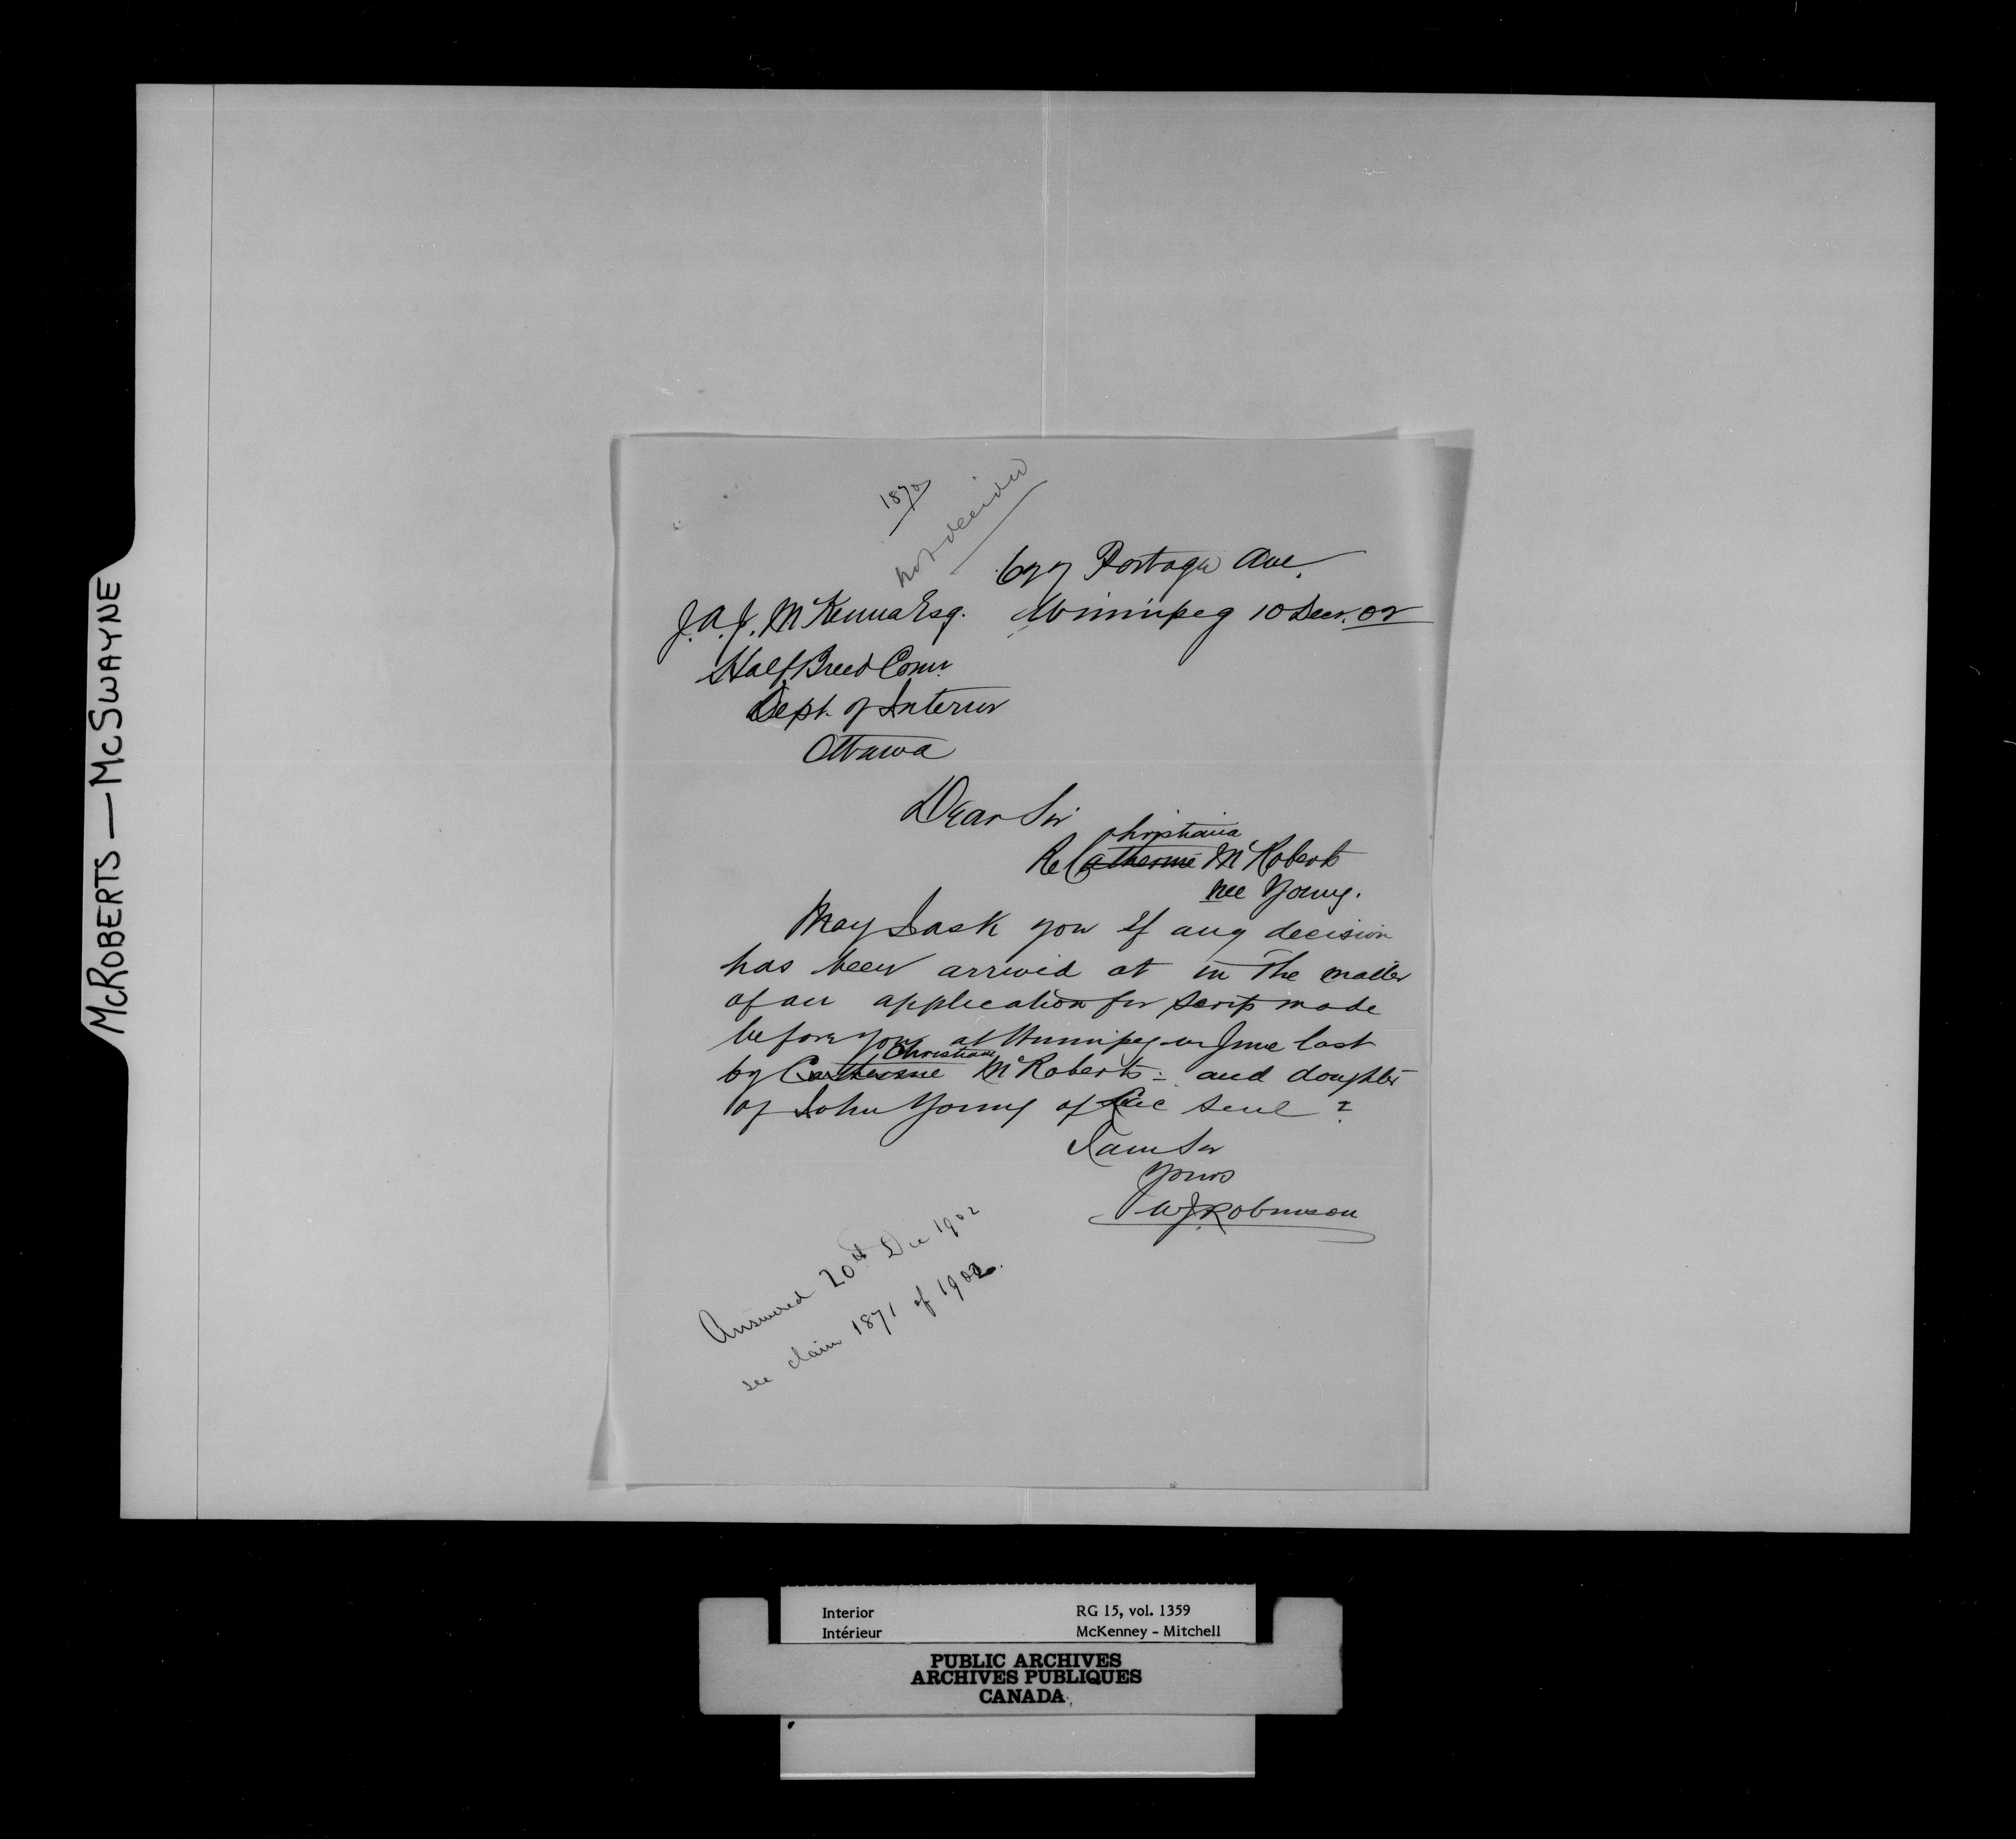 McROBERTS — McSWAYNE
1870
not decided
677 Portage Ave.
J.A.J. McKenna Esq. Winnipeg 10 Decr. 02
Half Breed Comr.
Dept. of Interior
Ottawa
Dear Sir
Christiana
Re Catherine McRoberts
nee Young.
May I ask you if any decision
has been arrived at in the matter
of an application for scrip made
before you at Winnipeg in June last
Christiana
by Catherine McRoberts and daughter
of John Young of Lac Seul ?
I am Sir
Yours
W J Robinson
Answered 20th Dec 1902
see claim 1871 of 1902.
Interior RG 15, vol. 1359
Intérieur McKenney - Mitchell
PUBLIC ARCHIVES
ARCHIVES PUBLIQUES
CANADA